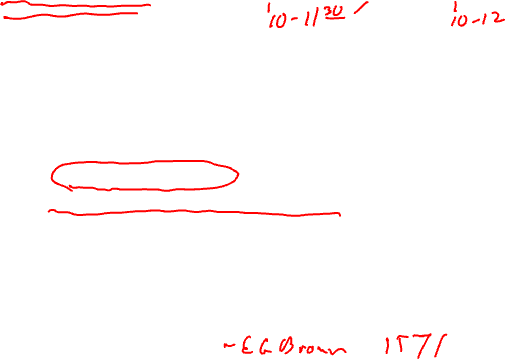 10-11 30 10-12
~EG Brown 1571